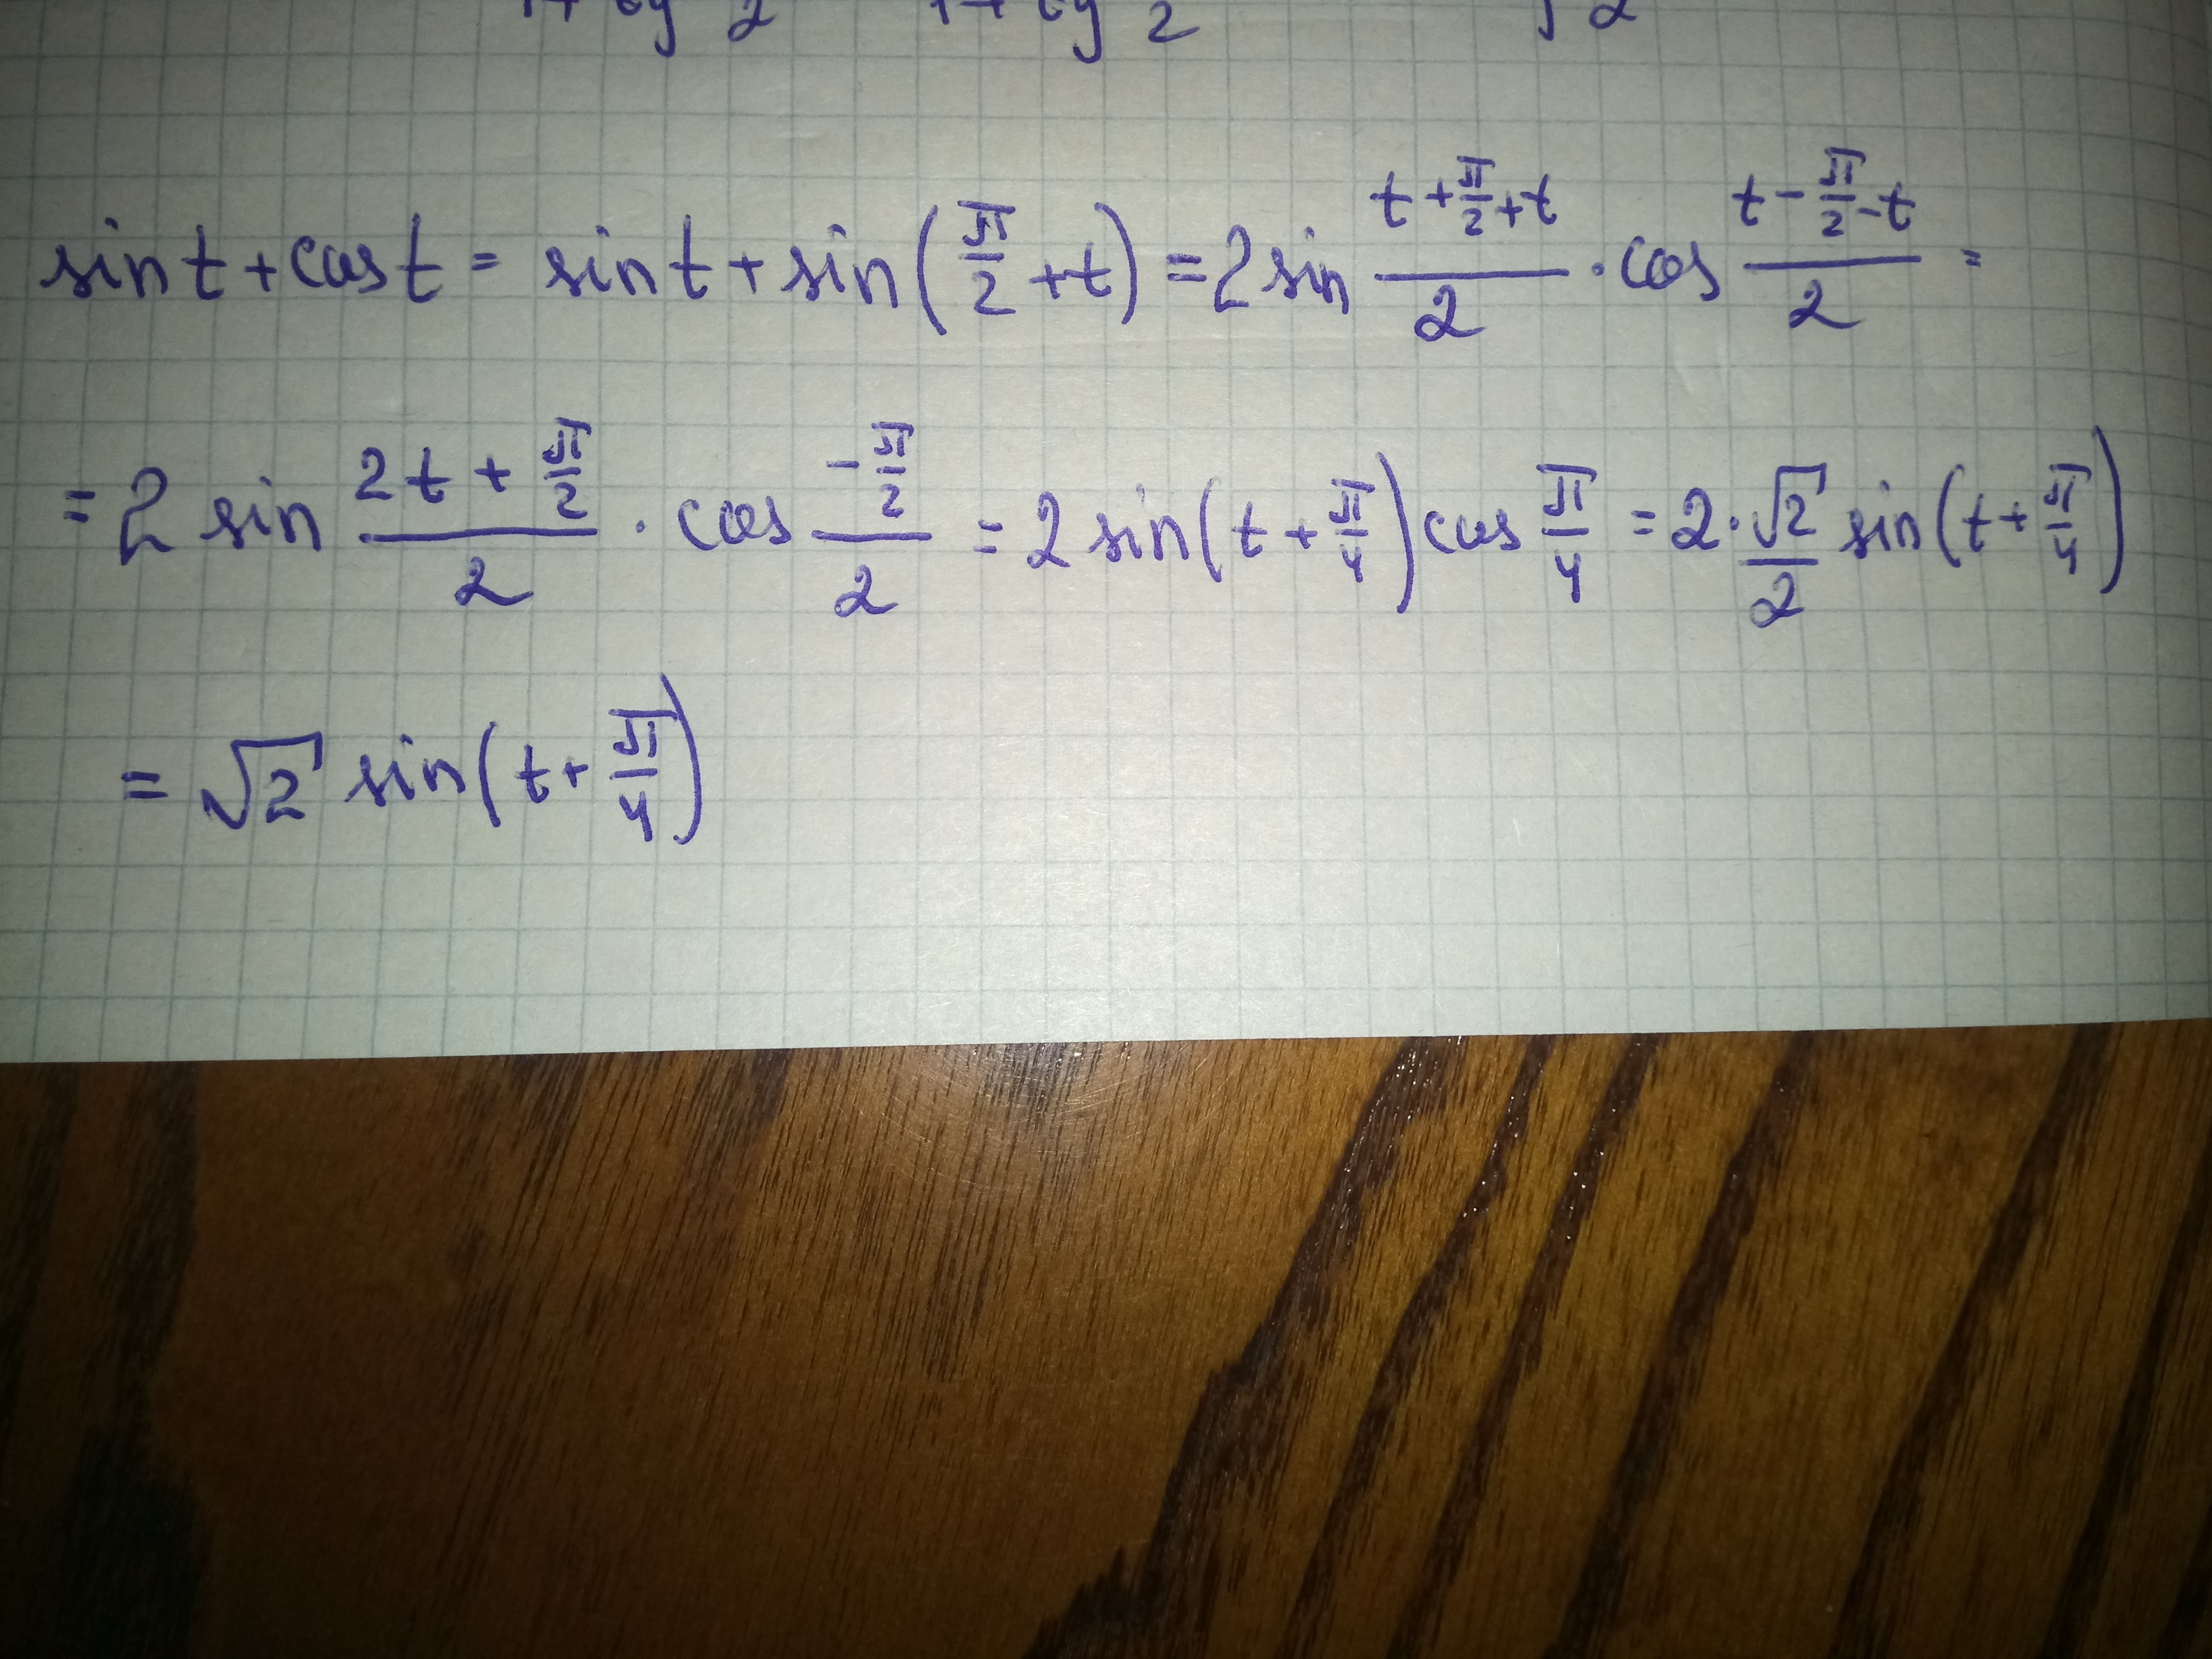 sin t + cos t = sin t + sin(π/2 + t) = 2 sin (t + π/2 + t)/2 · cos (t - π/2 - t)/2 =
= 2 sin (2t + π/2)/2 · cos (-π/2)/2 = 2 sin(t + π/4) cos π/4 = 2 · √2/2 sin(t + π/4)
= √2 sin(t + π/4)